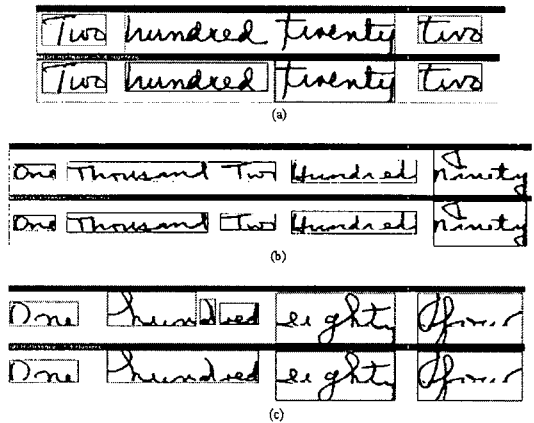 Two hundred twenty two
Two hundred twenty two
(a)
One Thousand Two Hundred Ninety
One Thousand Two Hundred Ninety
(b)
One hundred eighty
One hundred eighty
(c)